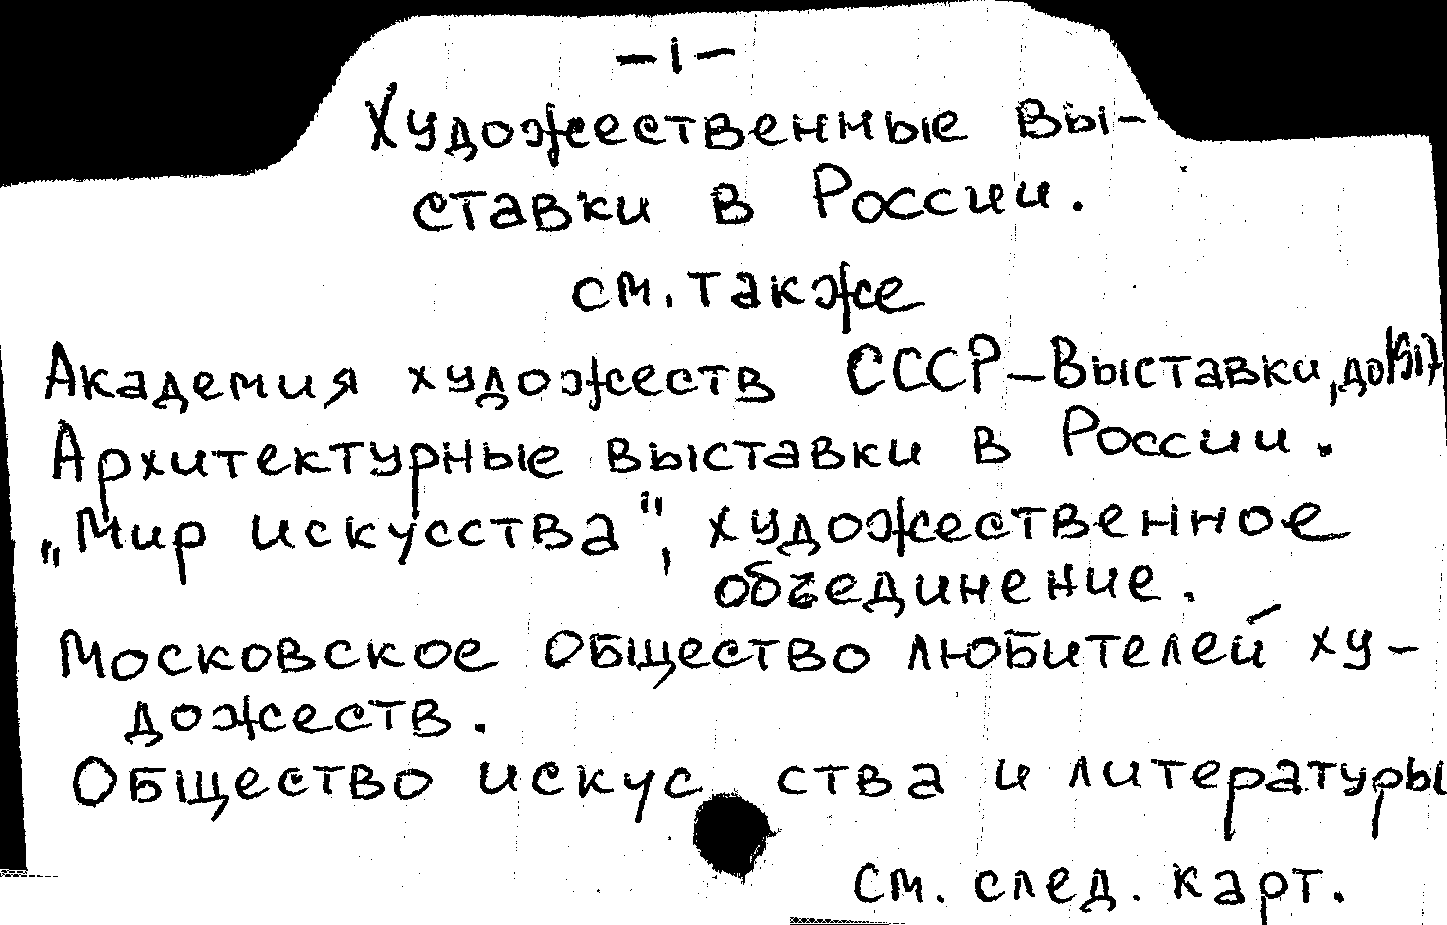 — 1 —
Художественные вы-
ставки в России.
см. также
Академия художеств СССР – Выставки, до 1917
Архитектурные выставки в России.
„Мир искусства", художественное
объединение.
Московское общество любителей ху-
дожеств.
Общество искусства и литературы
см. след. карт.